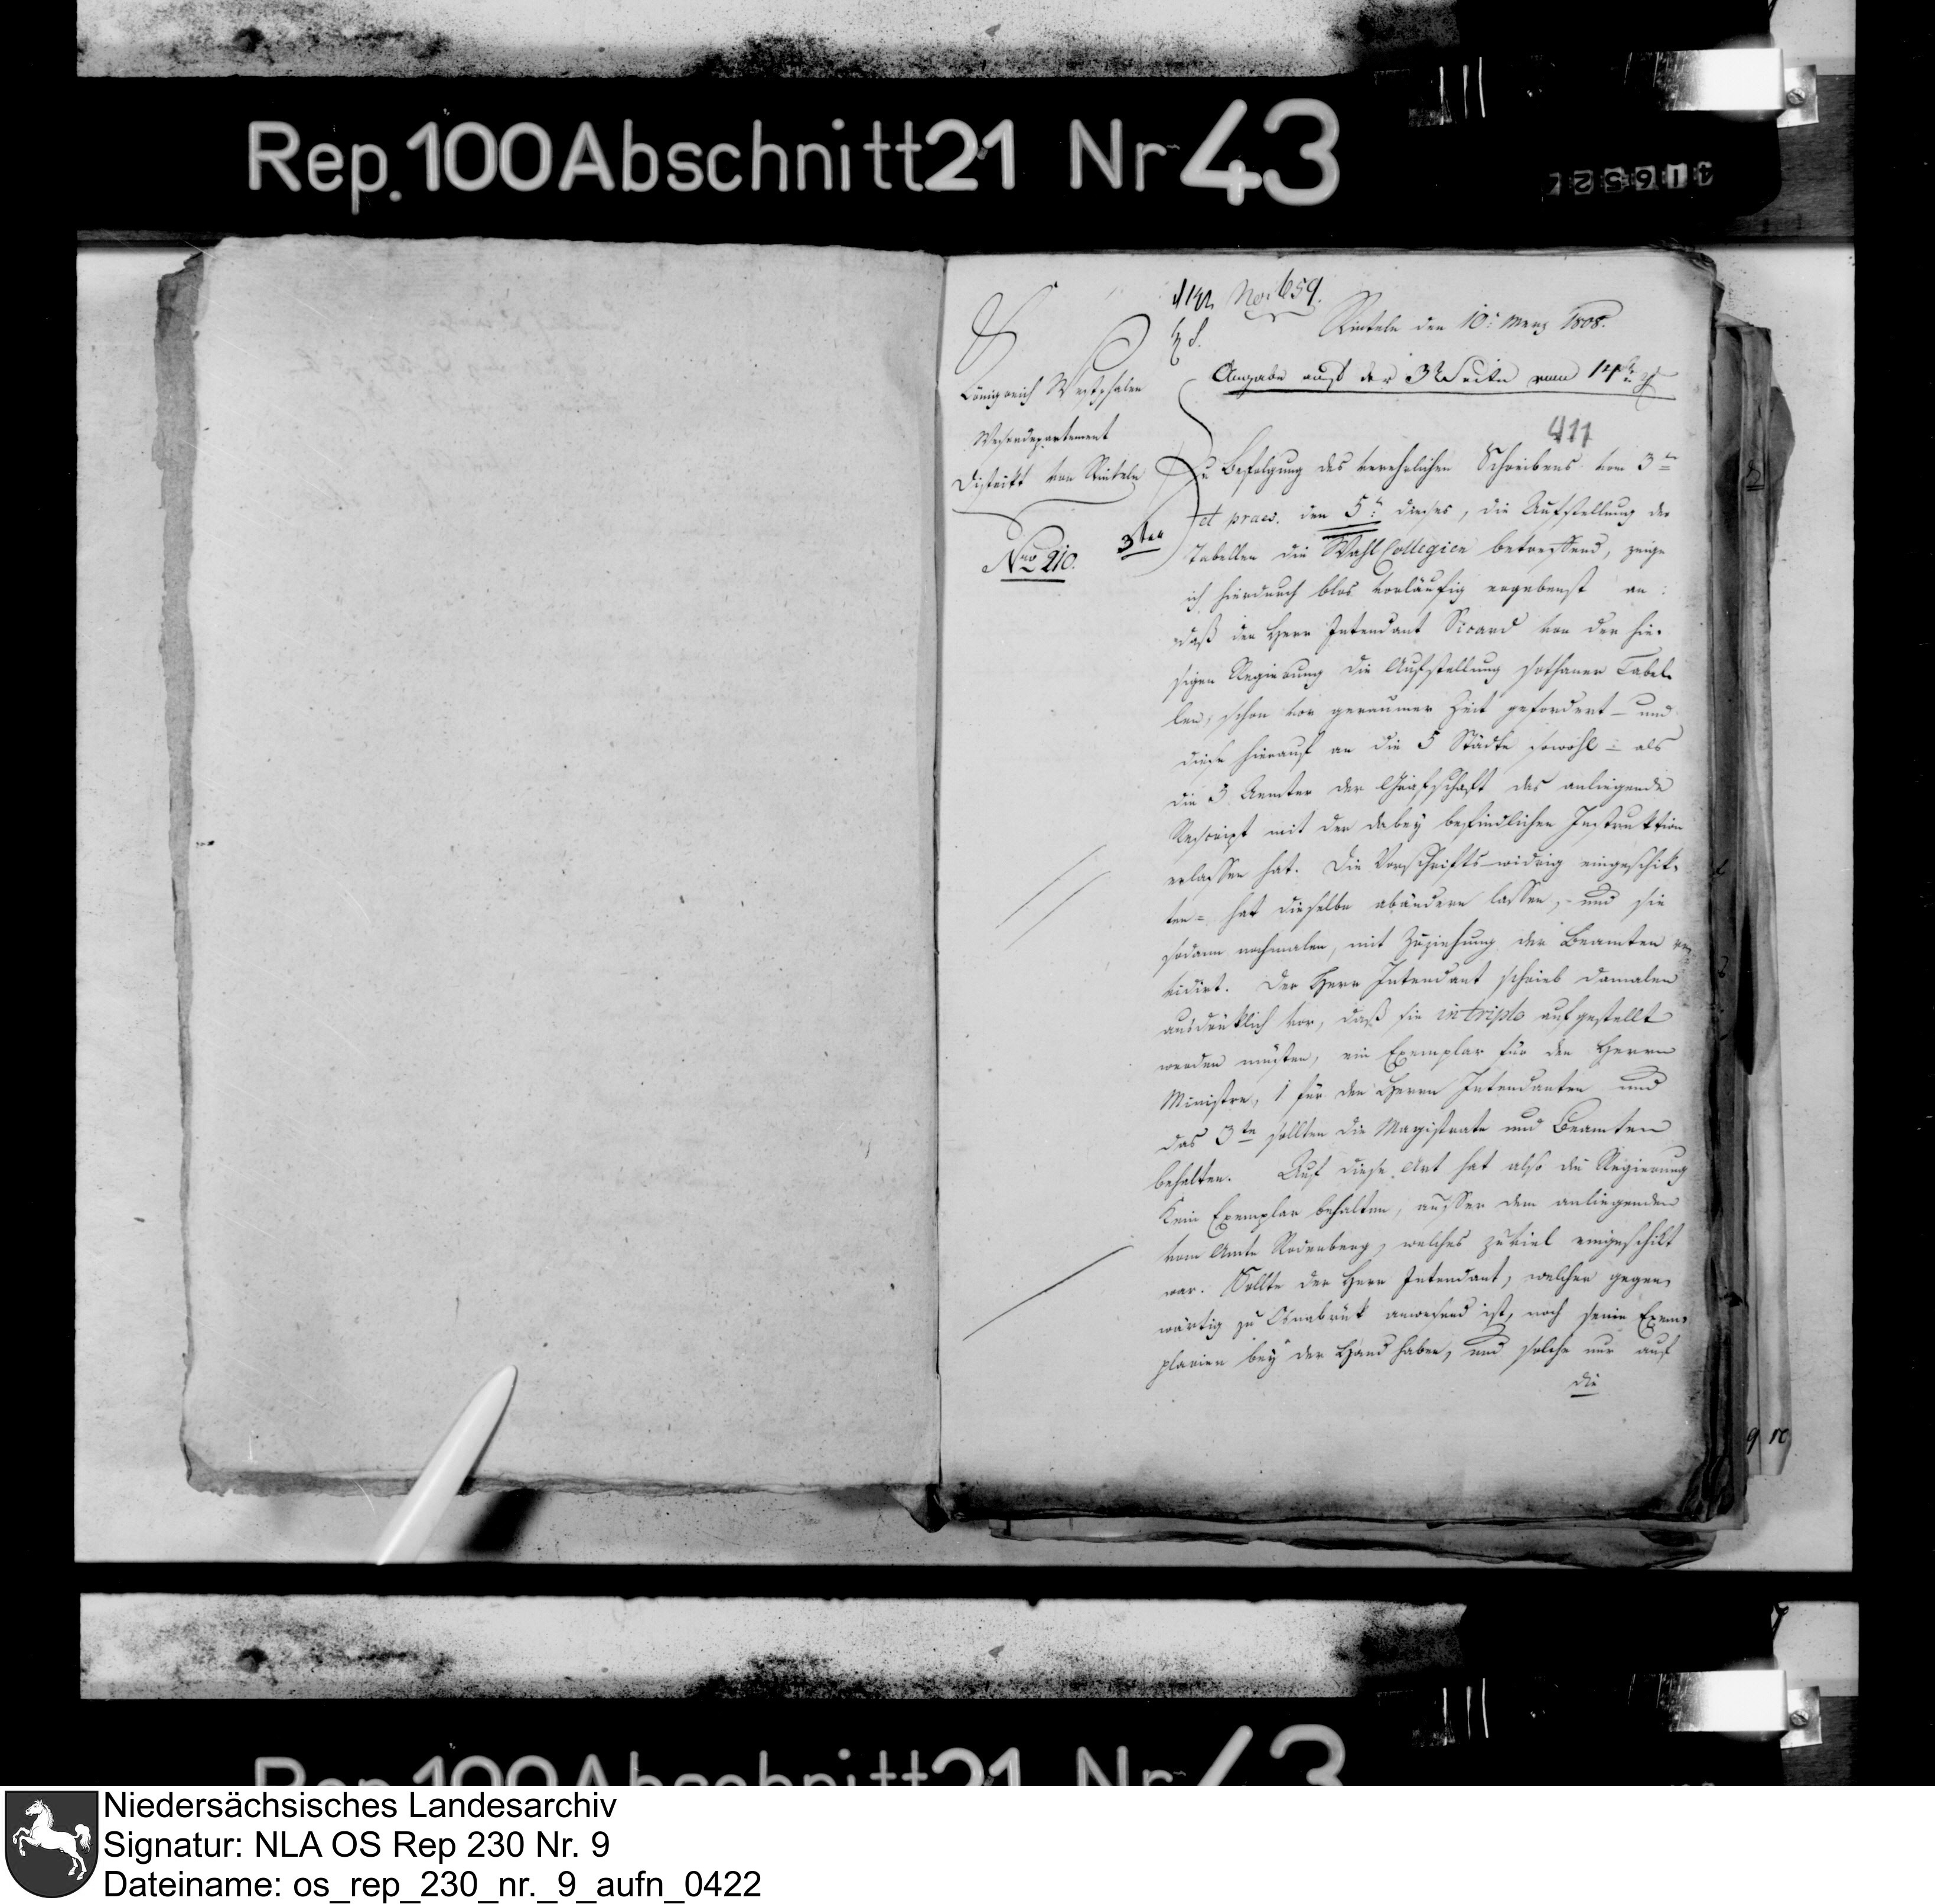 Rep. 100 Abschnitt 21 Nr 43
No. 659.
Rinteln den 10t Merz 1808.
Königreich Westphalen
Weserdepartement
Distrikt von Rinteln
Nro 210.
411
Zu Befolgung des verehrlichen Schreibens vom 3ten
et praes. den 5t dieses, die Aufstellung der
Tabellen die Wahl Collegien betreffend, zeige
ich hierdurch blos vorläufig ergebenst an:
daß der Herr Intendant Sicard von der hie-
sigen Regierung die Aufstellung sothaner Tabel-
len, schon vor geraumer Zeit gefordert – und
diese hierauf an die 5 Städte sowohl – als
die 3 Aemter der Grafschaft das anliegende
Rescript mit der dabey befindlichen Instruktion
erlassen hat. Die Vorschrifts-widrig eingeschik-
ten – hat dieselbe abändern lassen, – und sie
sodann nochmalen, mit Zuziehung der Beamten re-
vidirt. Der Herr Intendant schrieb damalen
ausdrüklich vor, daß sie in triplo aufgestellt
werden müsten, ein Exemplar für den Herrn
Ministre, 1 für den Herrn Intendanten und
das 3te sollten die Magistrate und Beamten
behalten. Auf diese Art hat also die Regierung
Kein Exemplar behalten, ausser dem anliegenden
vom Amte Rodenberg, welches zuviel eingeschikt
war. Sollte der Herr Intendant, welcher gegen-
wärtig zu Osnabrük anwesend ist, noch seine Exem-
plarien bey der Hand haben, und solche nur auf
die
Niedersächsisches Landesarchiv
Signatur: NLA OS Rep 230 Nr. 9
Dateiname: os_rep_230_nr._9_aufn_0422